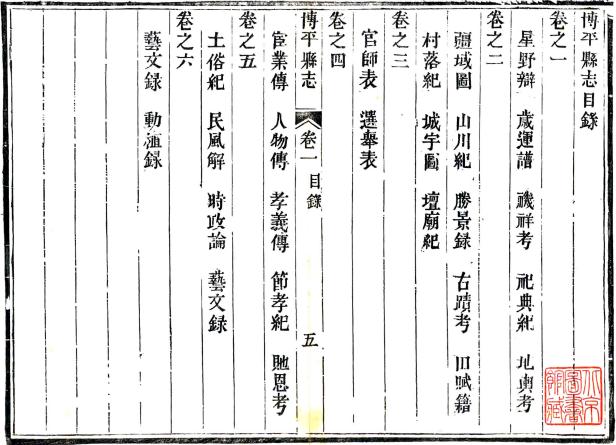 博平縣志目錄
卷之一
星野辯 歲運譜 禨祥考 祀典紀 地輿考
卷之二
疆域圖 山川紀 勝景録 古蹟考 田賦籍
村落紀 城宇圖 壇廟紀
卷之三
官師表 選舉表
卷之四
博平縣志 卷一 目錄 五
宦業傳 人物傳 孝義傳 節孝紀 貤恩考
卷之五
土俗紀 民風解 時政論 藝文録
卷之六
藝文録 動植録